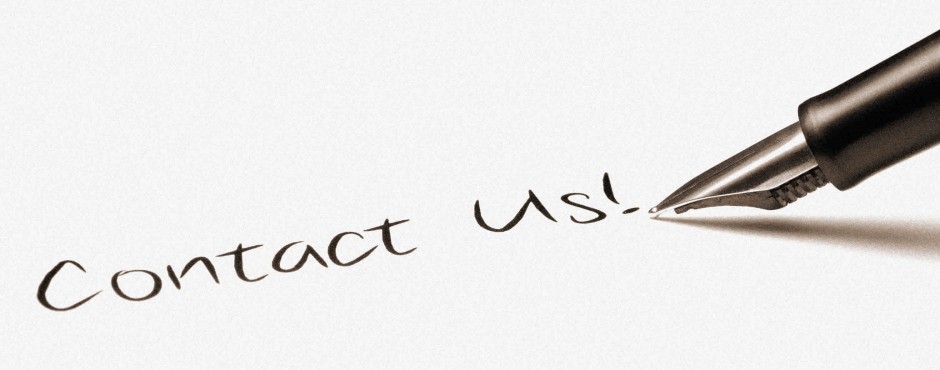 Contact Us!